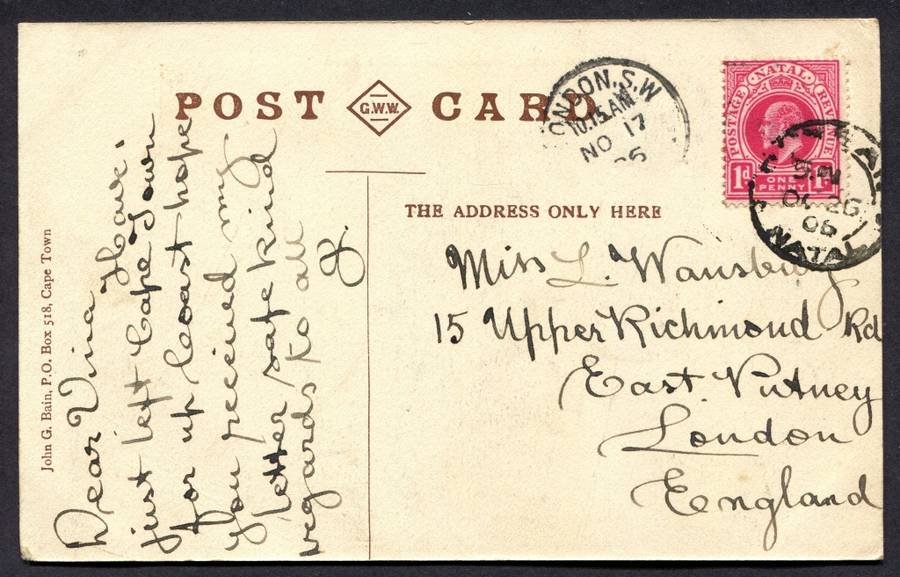 POST G.W.W. CARD
LONDON.S.W
10.15.AM
NO 17
06
POSTAGE NATAL REVENUE
1d ONE PENNY 1d
OC 26
06
NATAL
THE ADDRESS ONLY HERE
Miss L. Wansbury
15 Upper Richmond Rd
East Putney
London
England
Dear Vina Have
just left Cape Town
for up Coast hope
you received my
letter safe kind
regards to all
J.
John G. Bain, P.O. Box 518, Cape Town